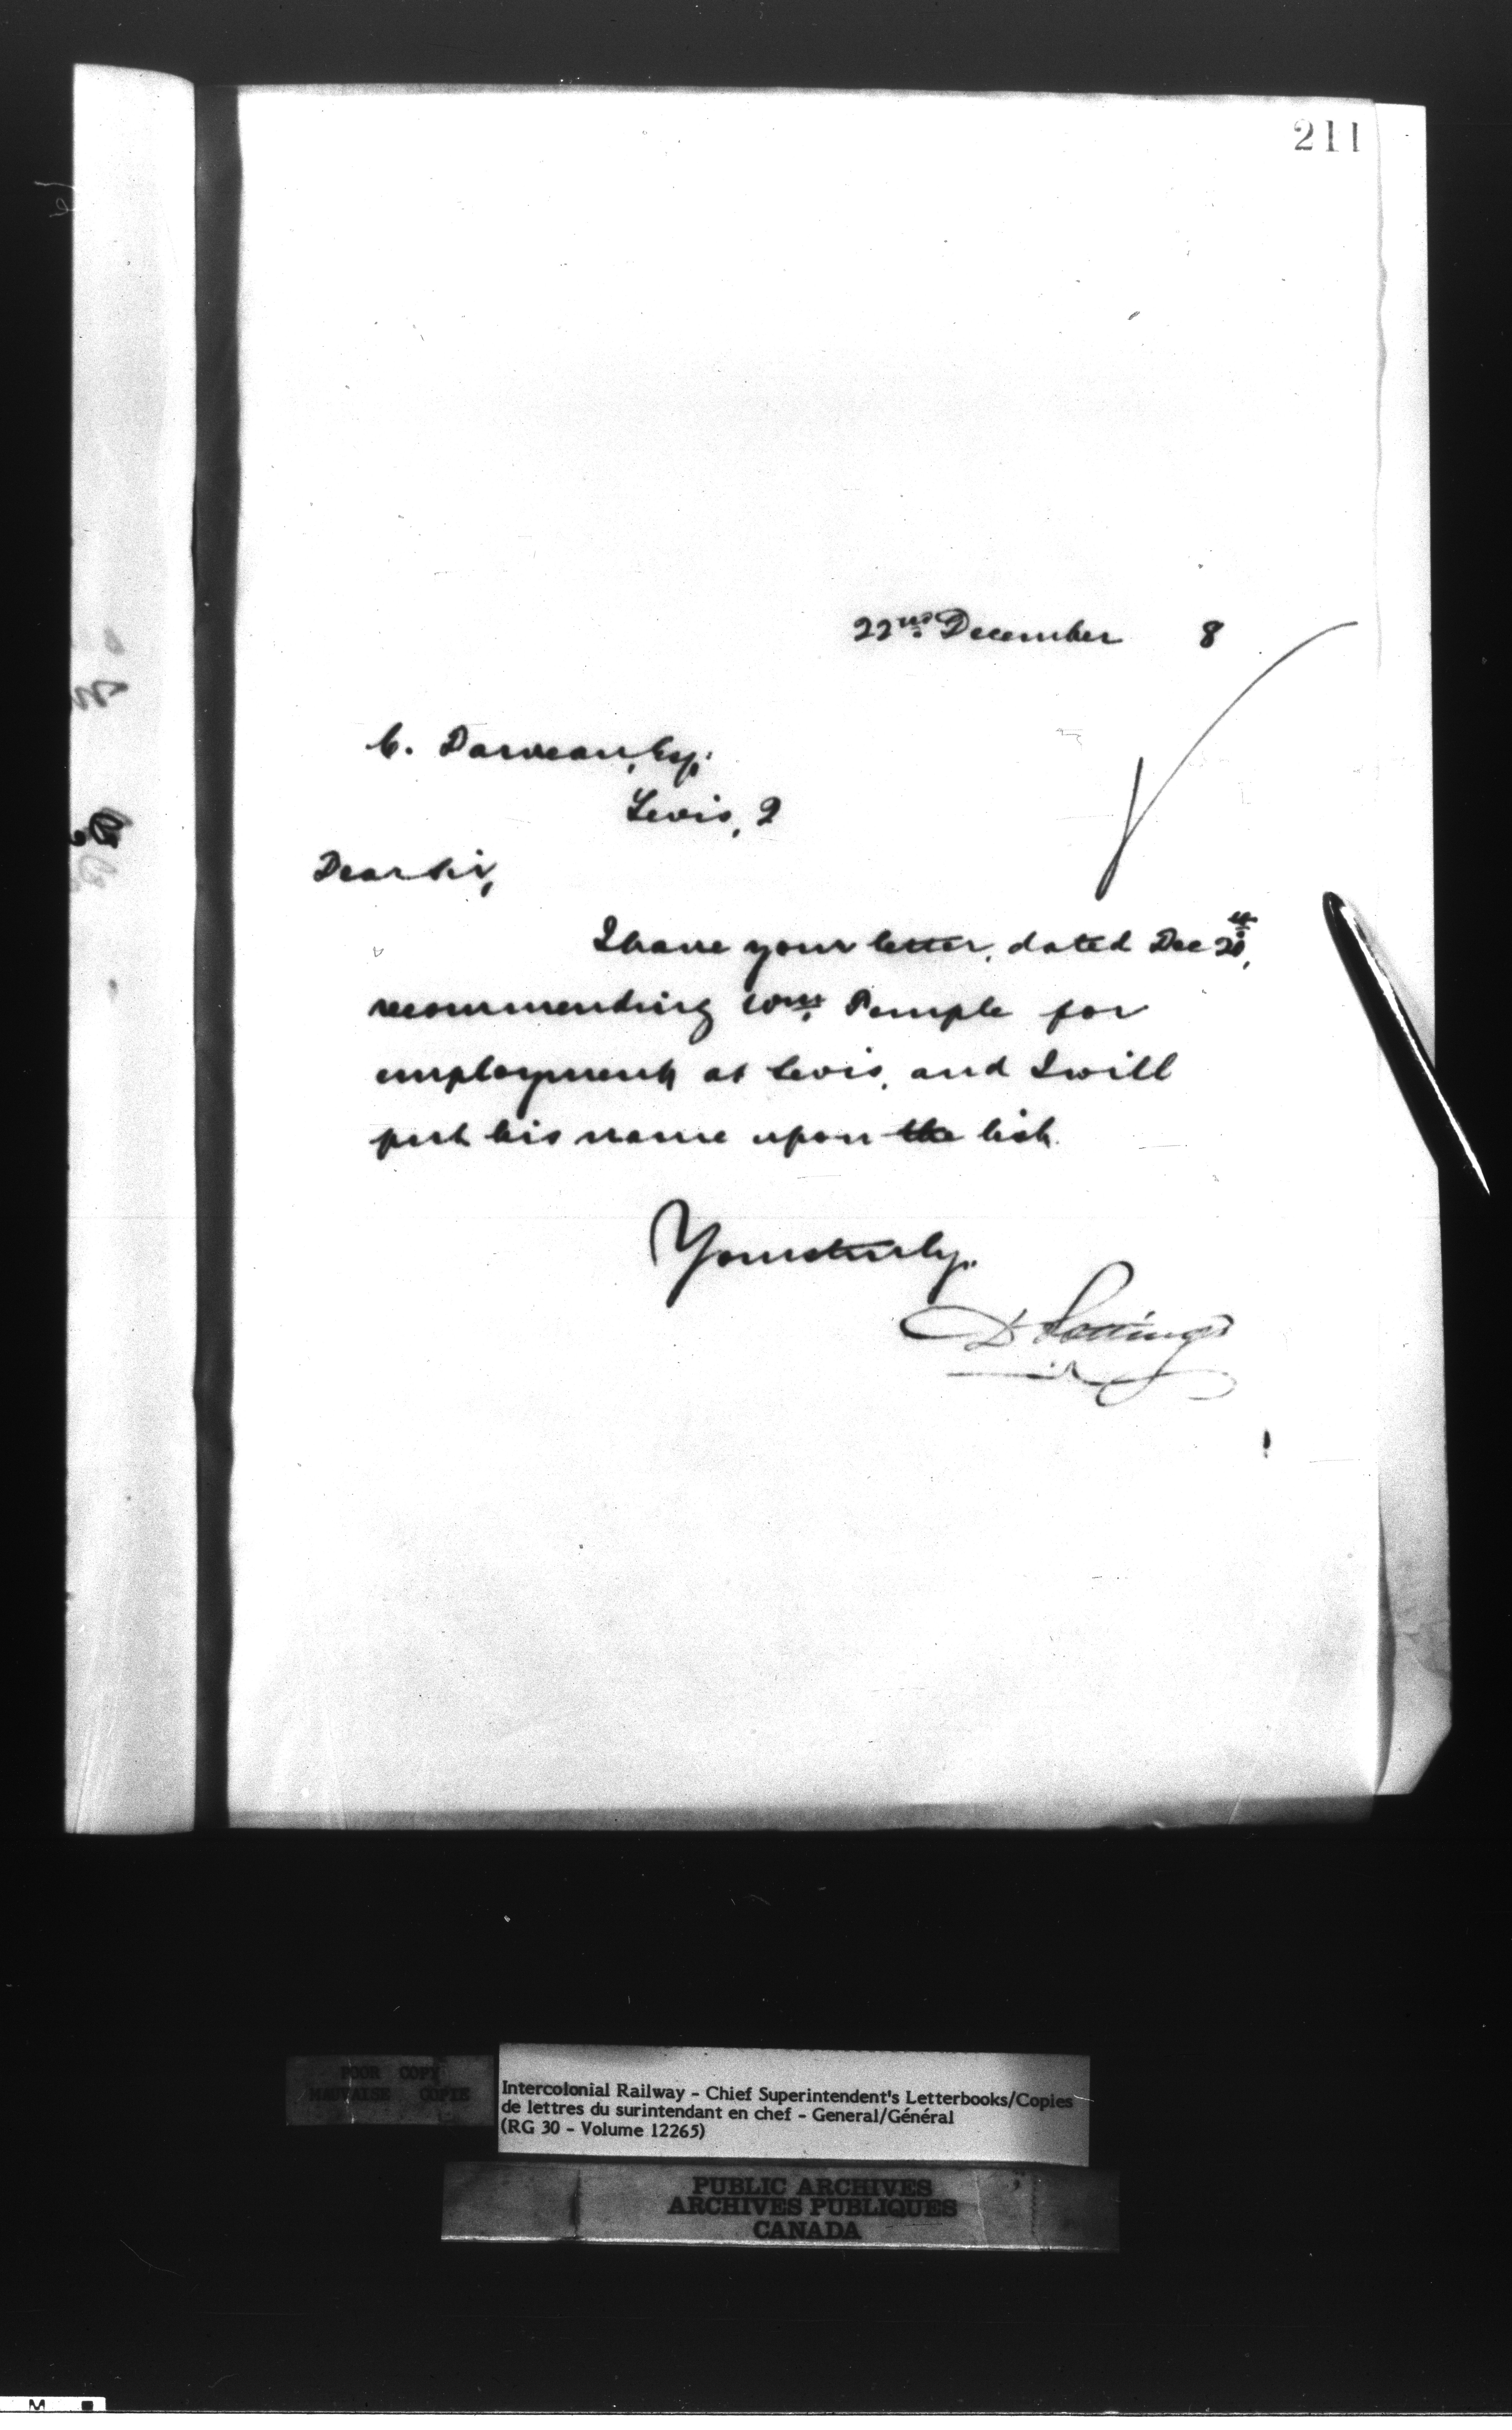 211
22nd December 8
C. Darveau, Esq.
Levis, Q
Dear Sir,
I have your letter, dated Dec 20th,
recommending Wm. Temple for
employment at Levis, and I will
put his name upon the list.
Yours truly,
D Pottinger
POOR COPY
MAUVAISE COPIE
Intercolonial Railway - Chief Superintendent's Letterbooks/Copies
de lettres du surintendant en chef - General/Général
(RG 30 - Volume 12265)
PUBLIC ARCHIVES
ARCHIVES PUBLIQUES
CANADA
M